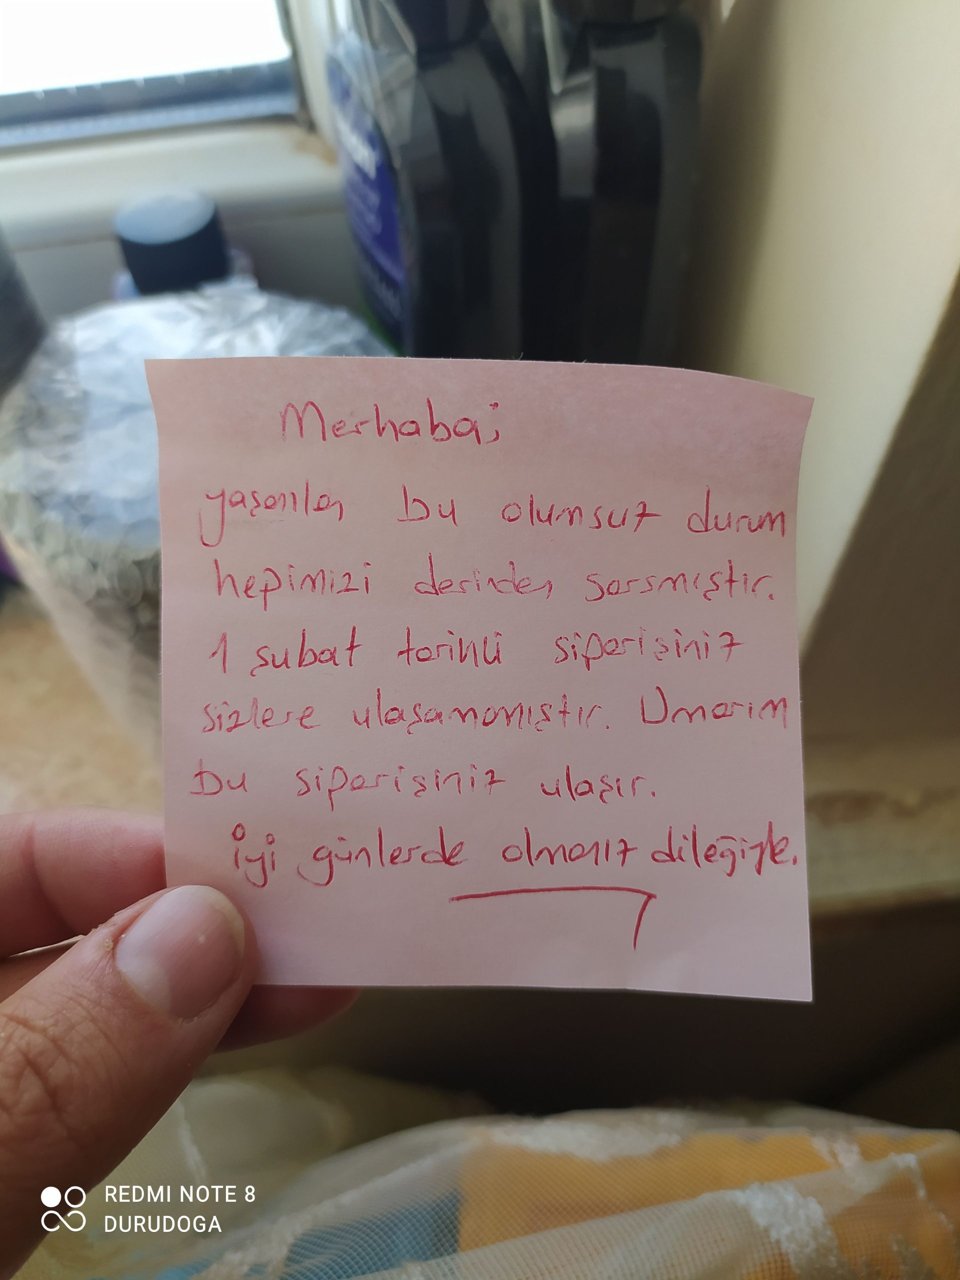 Merhaba;
yaşanılan bu olumsuz durum
hepimizi derinden sarsmıştır.
1 şubat tarihli siparişiniz
sizlere ulaşamamıştır. Umarım
bu siparişiniz ulaşır.
iyi günlerde olmanız dileğiyle.
REDMI NOTE 8
DURUDOGA